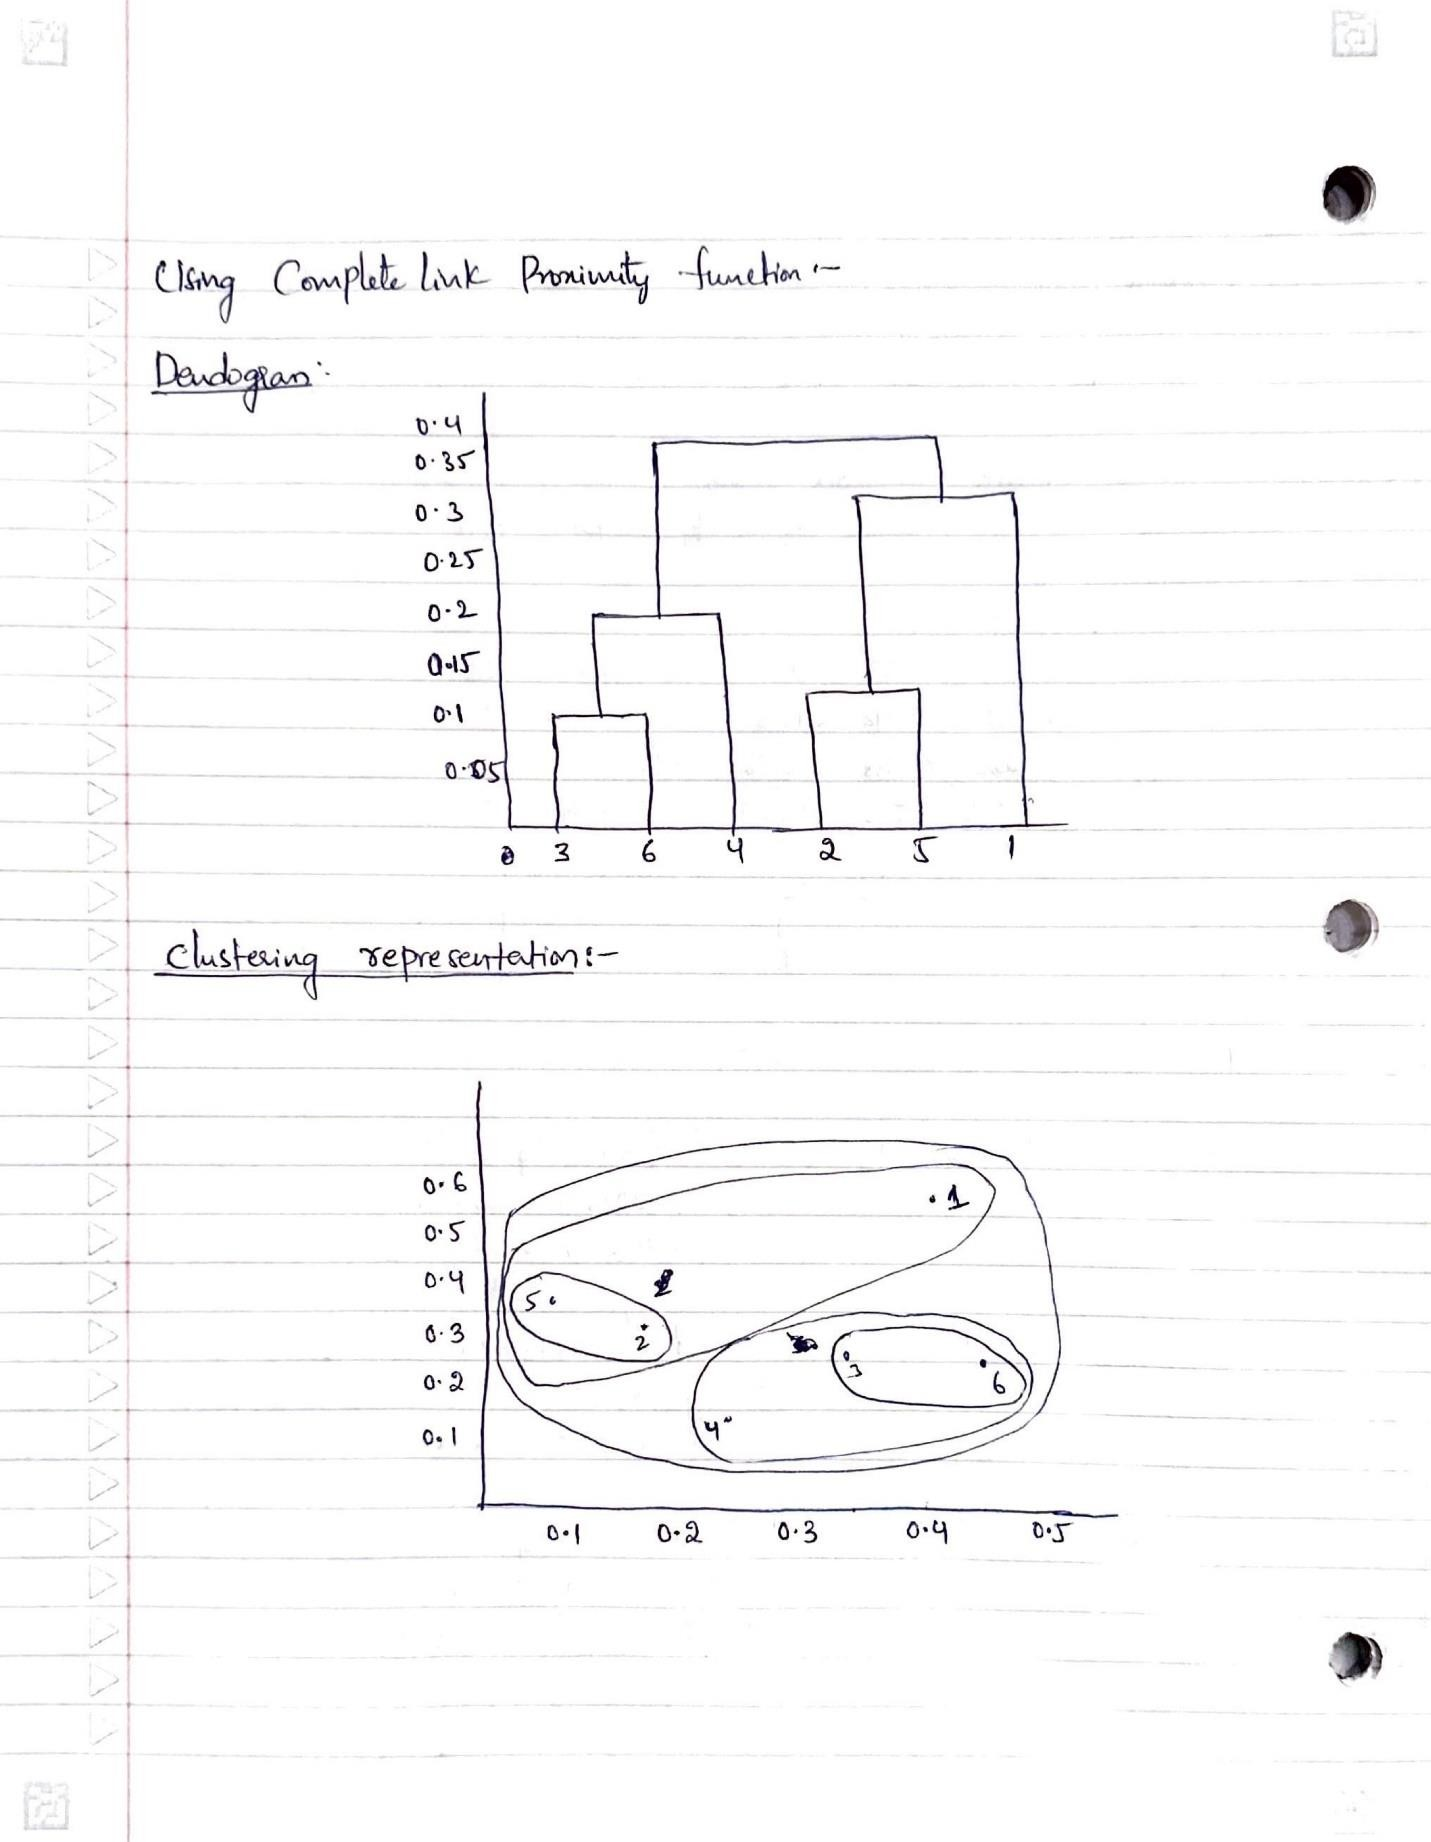 Using Complete link Proximity function :-
Dendogram:
0.4
0.35
0.3
0.25
0.2
0.15
0.1
0.05
0 3 6 4 2 5 1
Clustering representation:-
0.6
1
0.5
0.4
5
0.3
2
3
0.2
6
4
0.1
0.1 0.2 0.3 0.4 0.5